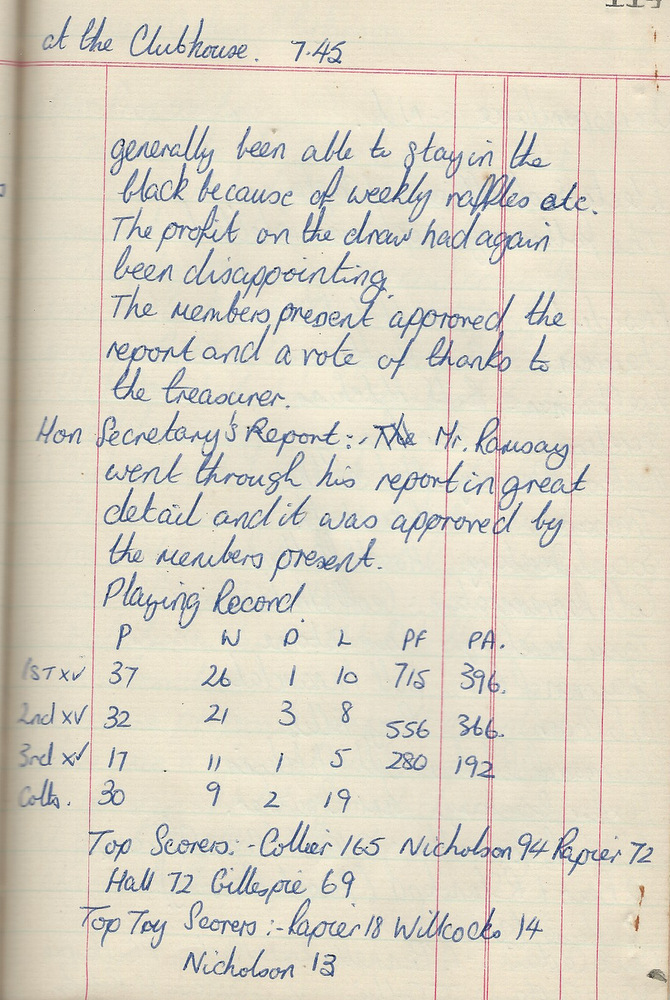 114
at the Clubhouse. 7.45
generally been able to stay in the
black because of weekly raffles etc.
The profit on the draw had again
been disappointing.
The members present approved the
report and a vote of thanks to
the treasurer.
Hon Secretary's Report:- Mr. Ramsay
went through his report in great
detail and it was approved by
the members present.
Playing Record
P W D L PF PA.
1ST XV 37 26 1 10 715 396.
2nd XV 32 21 3 8 556 366.
3rd XV 17 11 1 5 280 192
Colts. 30 9 2 19
Top Scorers:- Collier 165 Nicholson 94 Rapier 72
Hall 72 Gillespie 69
Top Try Scorers:- Rapier 18 Willcocks 14
Nicholson 13